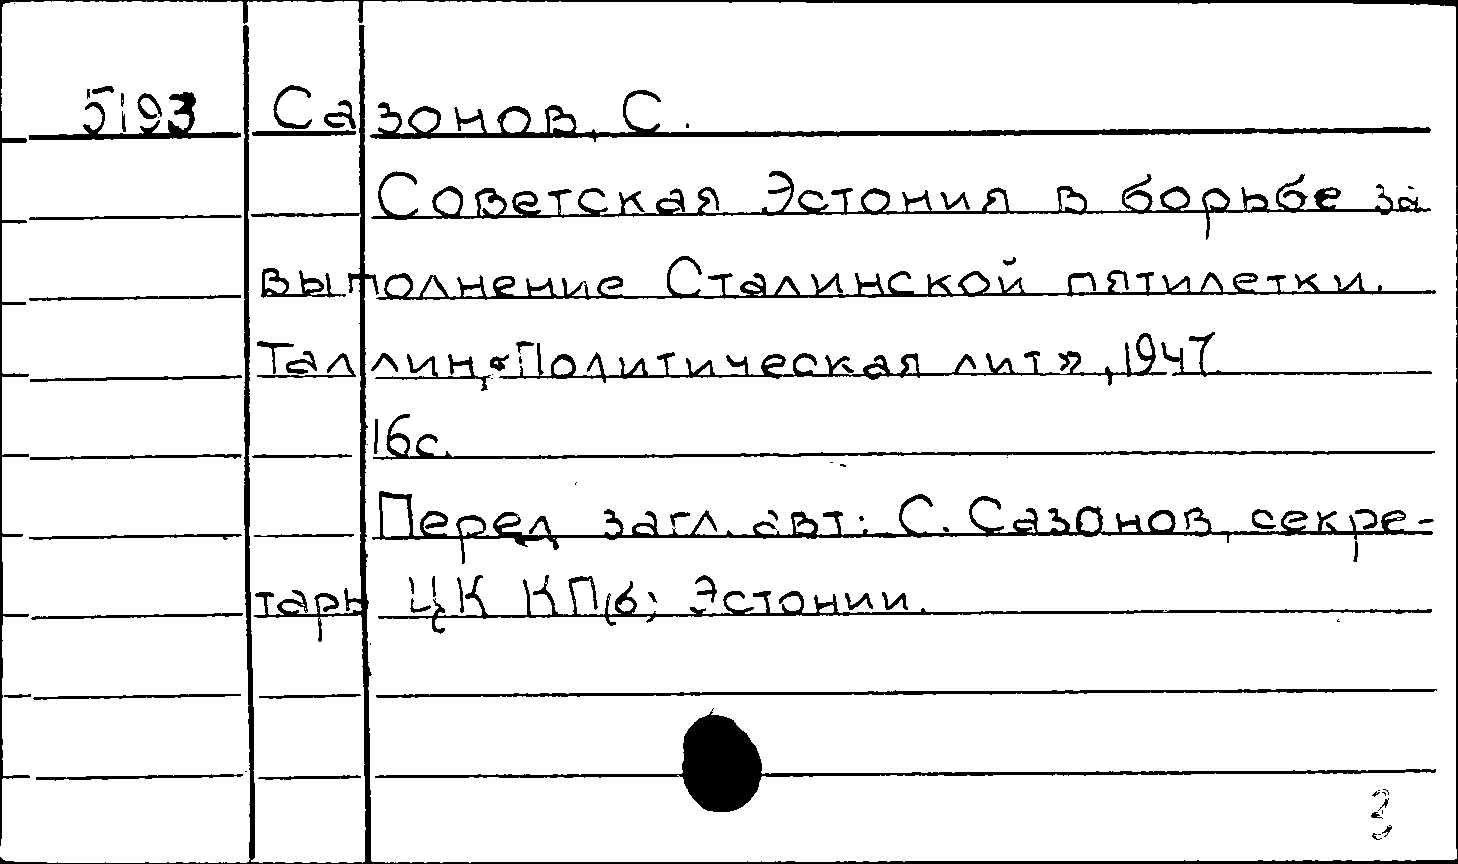 5193 Сазонов, С.
Советская Эстония в борьбе за
выполнение Сталинской пятилетки.
Таллин, «Политическая лит», 1947
16с.
Перед загл. авт.: С. Сазонов, секре-
тарь ЦК КП(б) Эстонии.
3